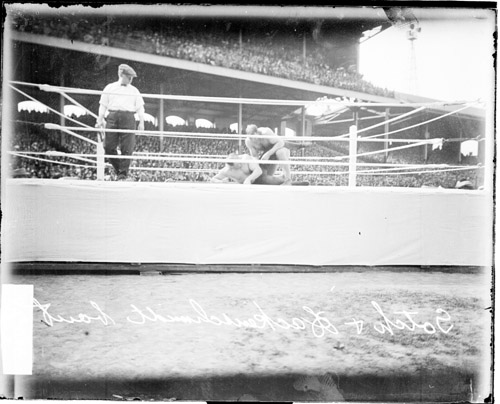 Gotch & Hackenschmidt bout